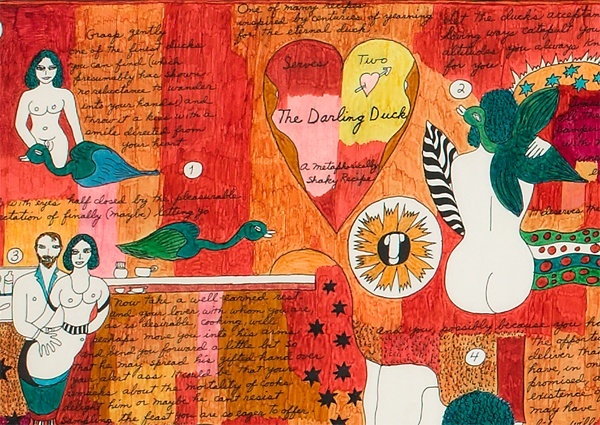 Grasp gently
one of the finest ducks
you can find (which
presumably has shown
no reluctance to wander
into your hands) and
throw it a kiss with a
smile directed from
your heart
One of many recipes
inspired by centuries of yearning
for the eternal duck
Let the duck's acceptan
loving ways catapult you
altitudes you always kn
for you.
Serves Two
The Darling Duck
a metaphysically
Shaky Recipe
1
2
with eyes half closed by the pleasurable
ctation of finally (maybe) letting go
3
Now take a well-earned rest
and your lover, with whom you are
is desirable, cooking will
perhaps move you into his arms
and bend you forward a little bit so
that he may spread his gifted hand over
your alert ass. Would be that your
about the mortality of cooks
delight him or maybe he can't resist
the feast you are so eager to offer
and you, possibly because you ha
the opportu
deliver than
have in one
promised, a
existence of
may have
4
It deserves the